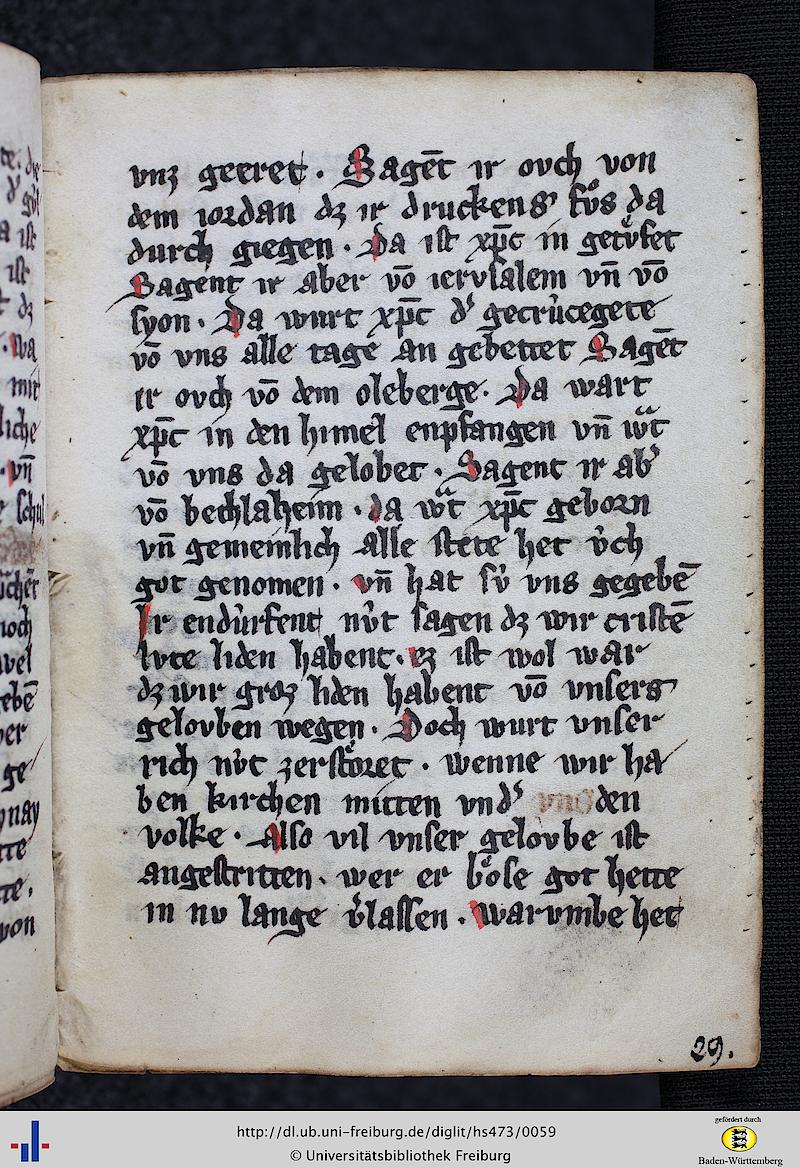 vnz geeret. Sagēt ir ovch von
dem iordan dz ir druckens fv̊s da
durch giegen. Da ist xp̄c in getǒfet
Sagent ir aber vō iervsalem vn̄ vō
syon. Da wurt xp̄c d' gecrúcegete
vō vns alle tage an gebettet Sagēt
ir ovch vō dem oleberge. Da wart
xp̄c in den himel enpfangen vn̄ wͣt
vō vns da gelobet. Sagent ir ab'
vō bethlaheim. da wͣt xp̄c geborn
vn̄ gemeinlich alle stete het v́ch
got genomen. vn̄ hat sv́ vns gegebē
Ir endúrfent nv́t sagen dz wir cristē
lvte liden habent. ez ist wol war
dz wir groz liden habent vō vnsers
gelovben wegen. Doch wurt vnser
rich nv́t zerstöret. wenne wir ha
ben kirchen mitten vnd' den
volke. Also vil vnser gelovbe ist
angestritten. wer er böse got hette
in nv lange v'lassen. Warvmbe het
29.
http://dl.ub.uni-freiburg.de/diglit/hs473/0059
© Universitätsbibliothek Freiburg
gefördert durch
Baden-Württemberg